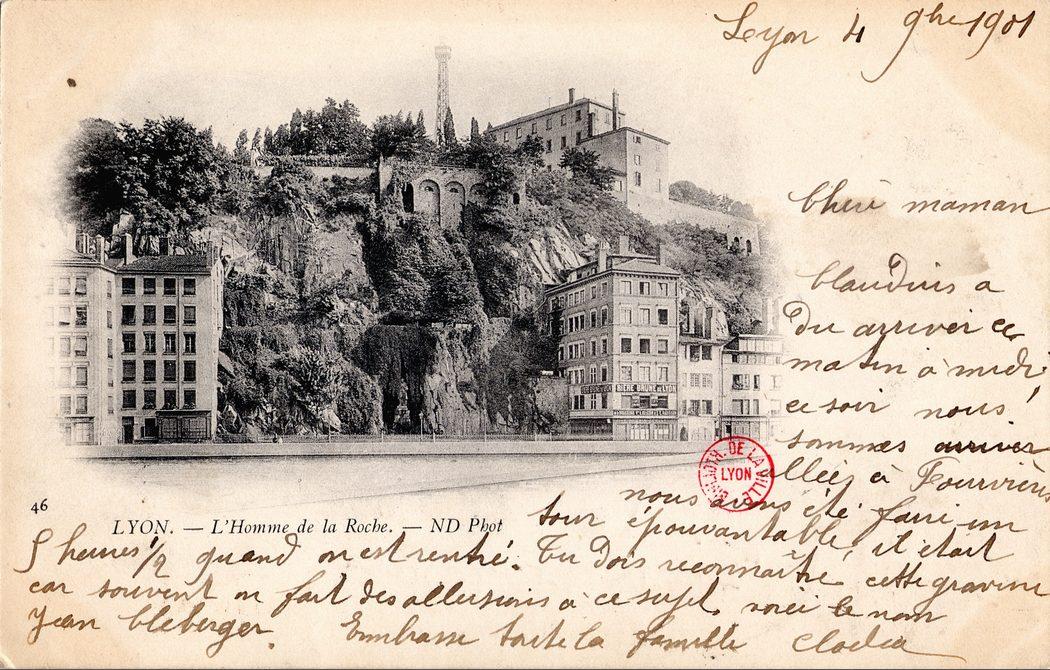 Lyon 4 9bre 1901
Chère maman
Claudius a
Du arriver ce
matin à midi
ce soir nous
sommes arriver
allées à Fourvière
nous avons été faire un
tour épouvantable, il était
5 heures 1/2 quand on est rentré. Tu dois reconnaître cette gravure
car souvent on fait des allusions à ce sujet, voici le nom
Jean Cleberger. Embrasse toute la famille
BIÈRE BRUNE DE LYON
BIBLIOTH. DE LA VILLE
LYON
46
LYON. — L'Homme de la Roche. — ND Phot